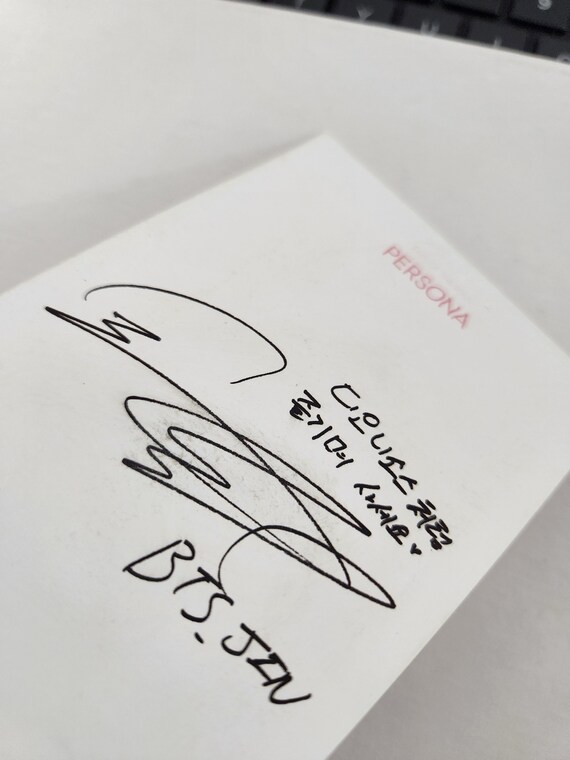 PERSONA
디오니소스 처럼
즐기며 사세요♥
BTS_JIN